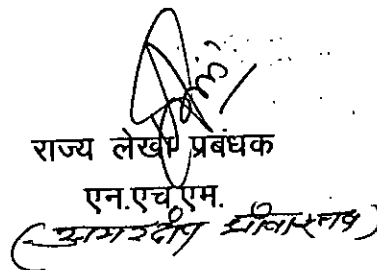 राज्य लेखा प्रबंधक
एन.एच.एम.
(अमरदीप श्रीवास्तव)